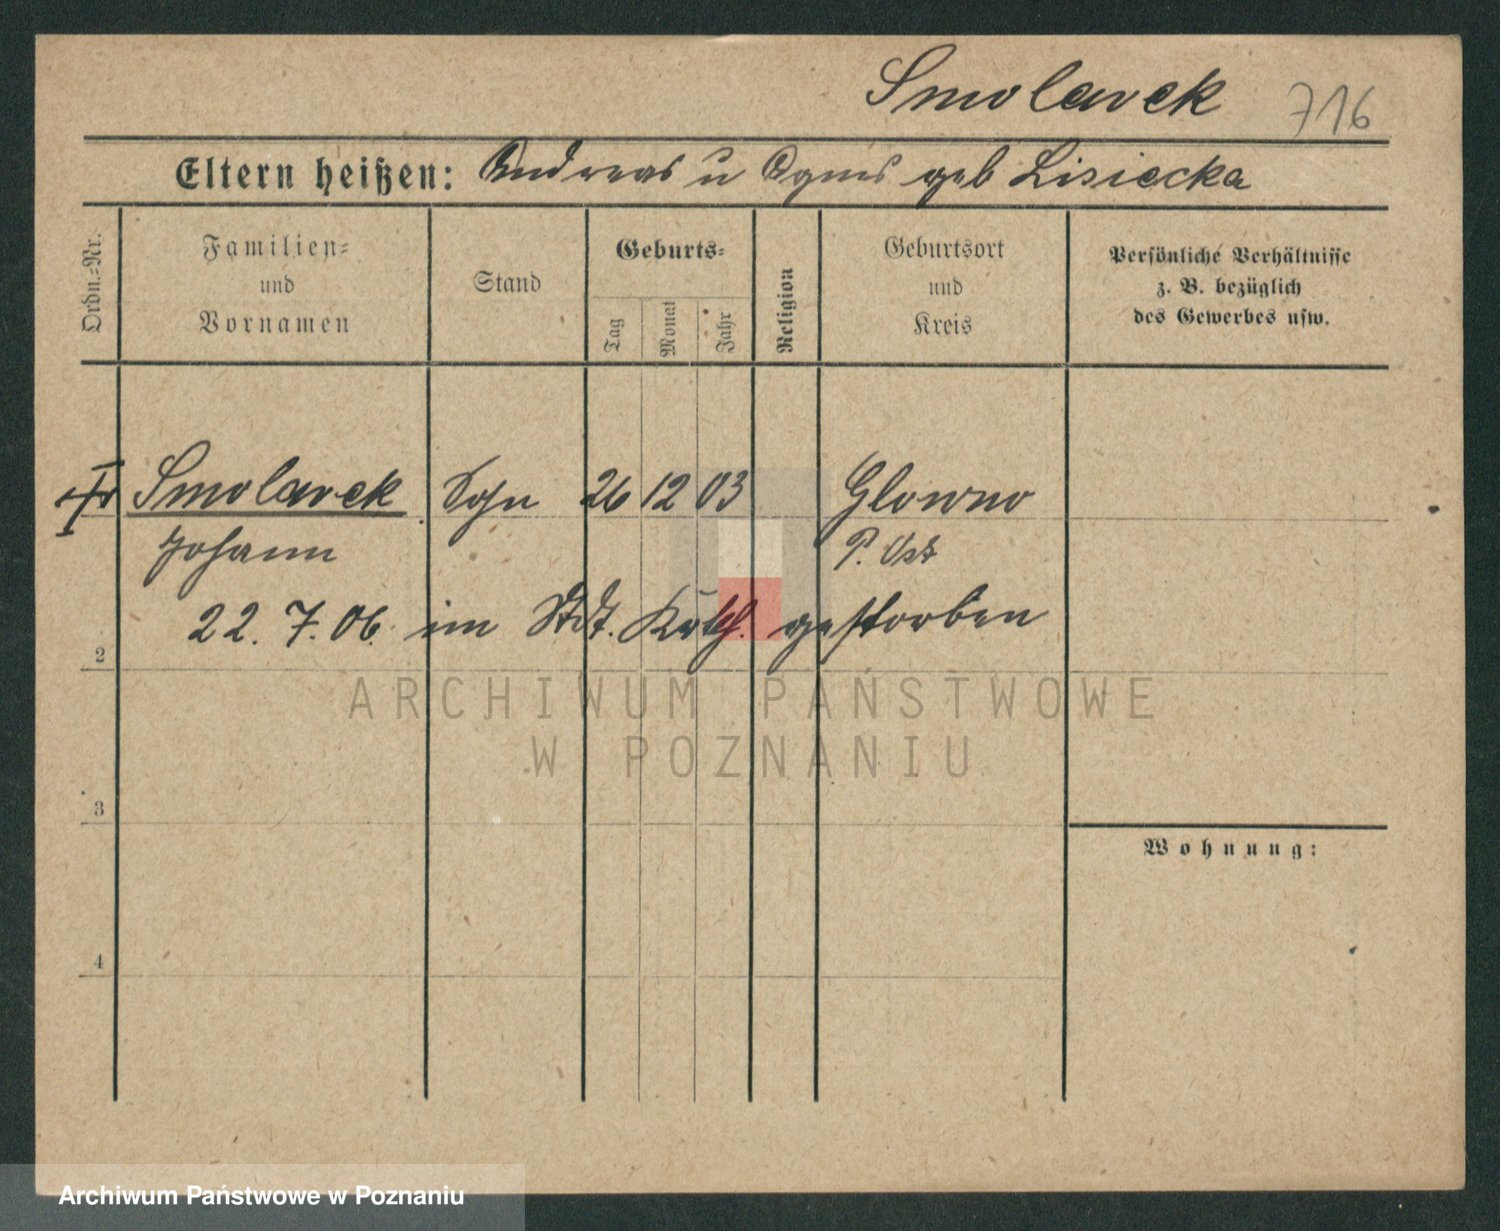 Smolarek 716
Eltern heißen: Andreas u Agnes geb Lisiecka
Ordn.-Nr.
Familien-
und
Vornamen
Stand
Geburts-
Tag
Monat
Jahr
Religion
Geburtsort
und
Kreis
Persönliche Verhältnisse
z. B. bezüglich
des Gewerbes usw.
Smolarek Sohn 26 12 03 Glowno
Johann P. Ost
22. 7. 06 im Stdt. gestorben
2
ARCHIWUM PAŃSTWOWE
W POZNANIU
3
Wohnung:
4
Archiwum Państwowe w Poznaniu